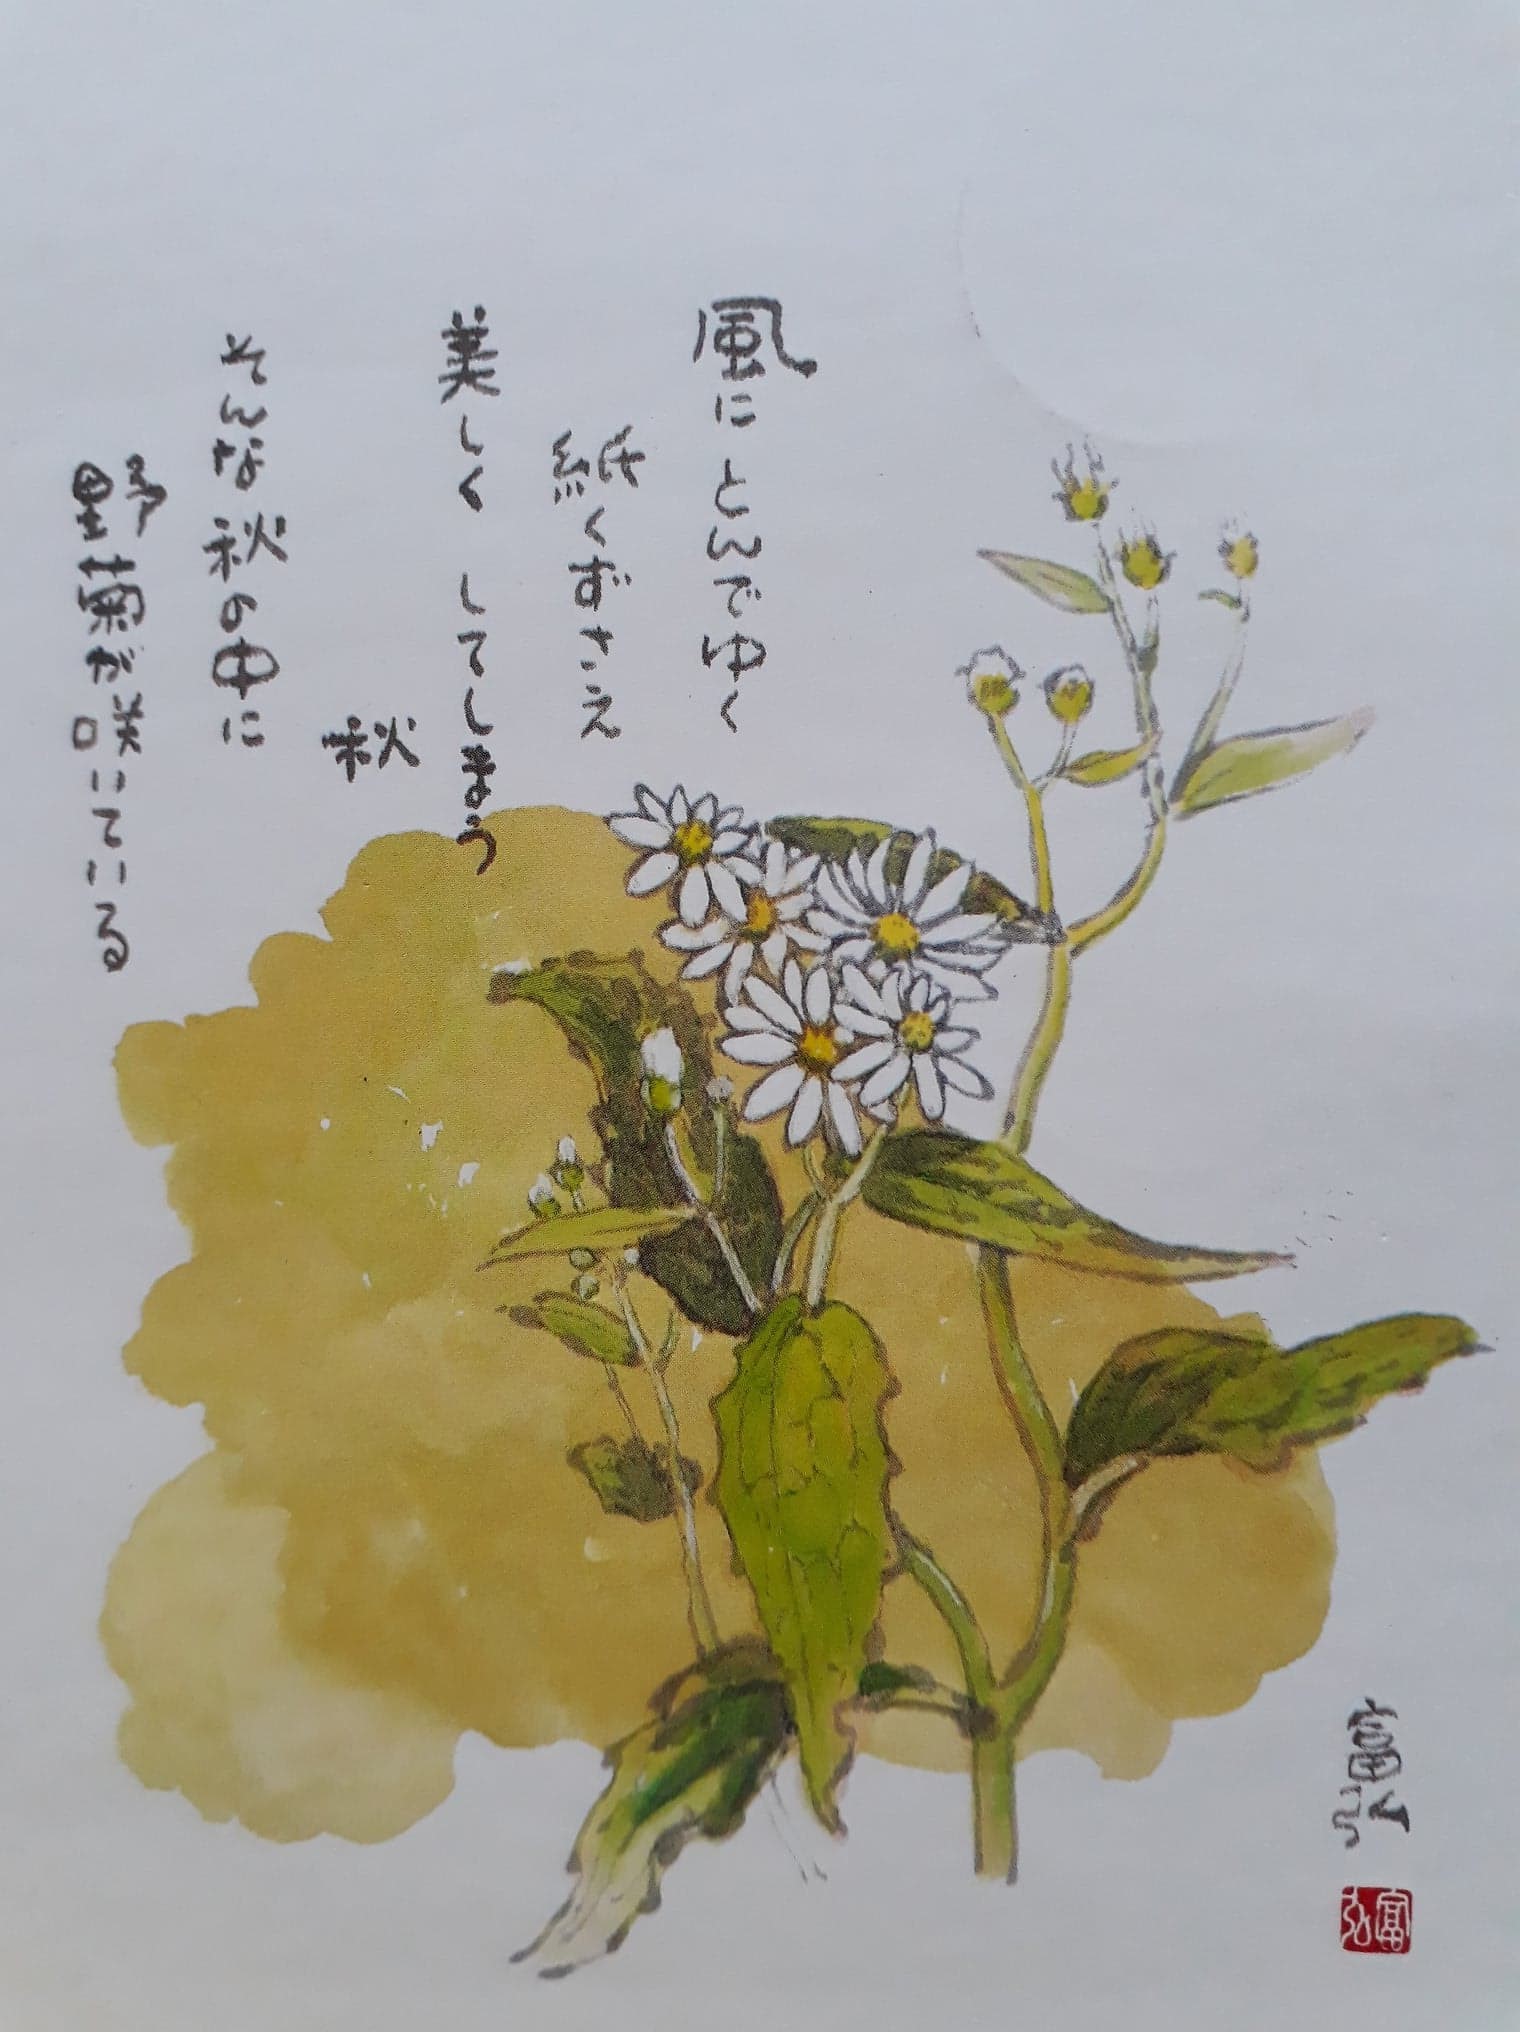 風に とんでゆく
紙くずさえ
美しく してしまう
秋
そんな秋の中に
野菊が咲いている
富弘
富弘